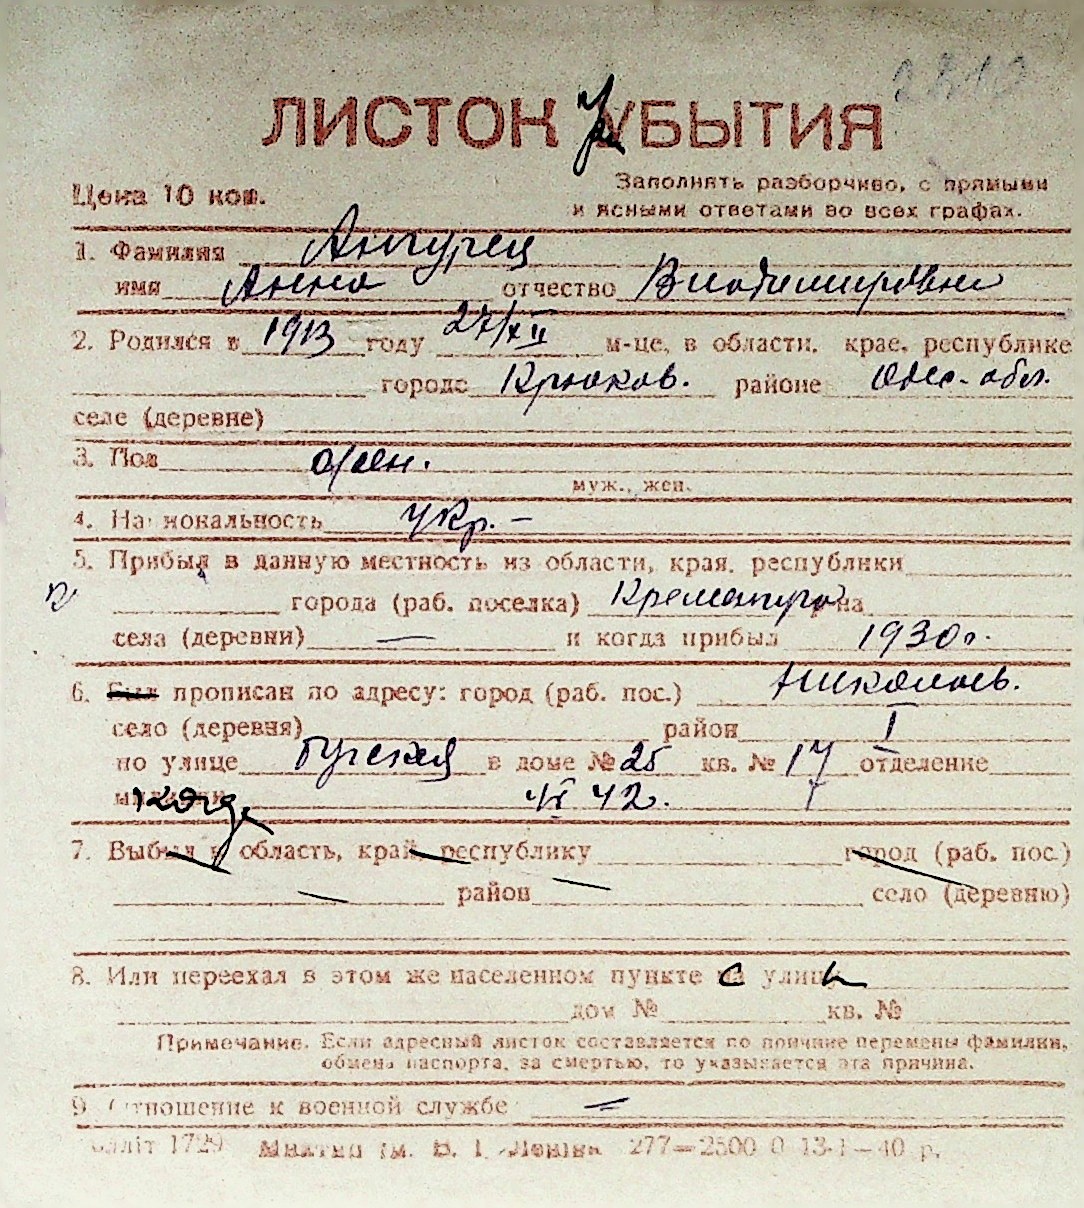 ЛИСТОК УБЫТИЯ
Цена 10 коп.
Заполнять разборчиво, с прямыми
и ясными ответами во всех графах.
1. Фамилия Ангурец
имя Анна отчество Владимировна
2. Родился в 1913 году 27/XII м-це, в области, крае, республике
городе Крюков. районе Одес. обл.
селе (деревне)
3. Пол жен.
муж., жен.
4. Национальность укр. –
5. Прибыл в данную местность из области, края, республики
города (раб. поселка) на
села (деревни) — и когда прибыл 1930 г.
6. Был прописан по адресу: город (раб. пос.) Николаев.
село (деревня) район I
по улице в доме № 25 кв. № 17 отделение
милиции Когда VI 42.
7. Выбыл в область, край, республику город (раб. пос.)
район село (деревню)
8. Или переехал в этом же населенном пункте с улицы
дом № кв. №
Примечание. Если адресный листок составляется по причине перемены фамилии,
обмена паспорта, за смертью, то указывается эта причина.
9. Отношение к военной службе =
1729 ім. В. І. Леніна 277—2500 0 13-I—40 р.